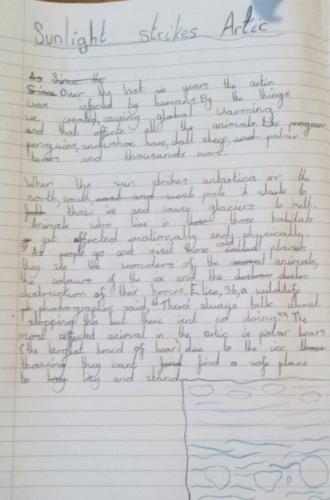 Sunlight strikes Artic
As Since the
Since Over the last six years the artic
was infected by humans. By the things
we created, causing global warming
and that effects all the animals like penguin
penguins, snowshoe hare, dall sheep, and polar
bears and thousands more.
When the sun strikes antartica or the
north, south, east and west pole it starts to
thaw ice and cause glaciers to melt.
Animals who live in those habitats
get affected emotionally and physically.
As people go and visit those cold places
they see the wonders of the animals,
the colours of the ice and the
destruction of their homes. Elise, 36, a wildlife
photographer said "There's always talk about
stopping this but there not doing". The
most affected animal in the artic is polar bears
(the largest breed of bear) due to the ice
thawing they cant find a safe place
to lay and stand.